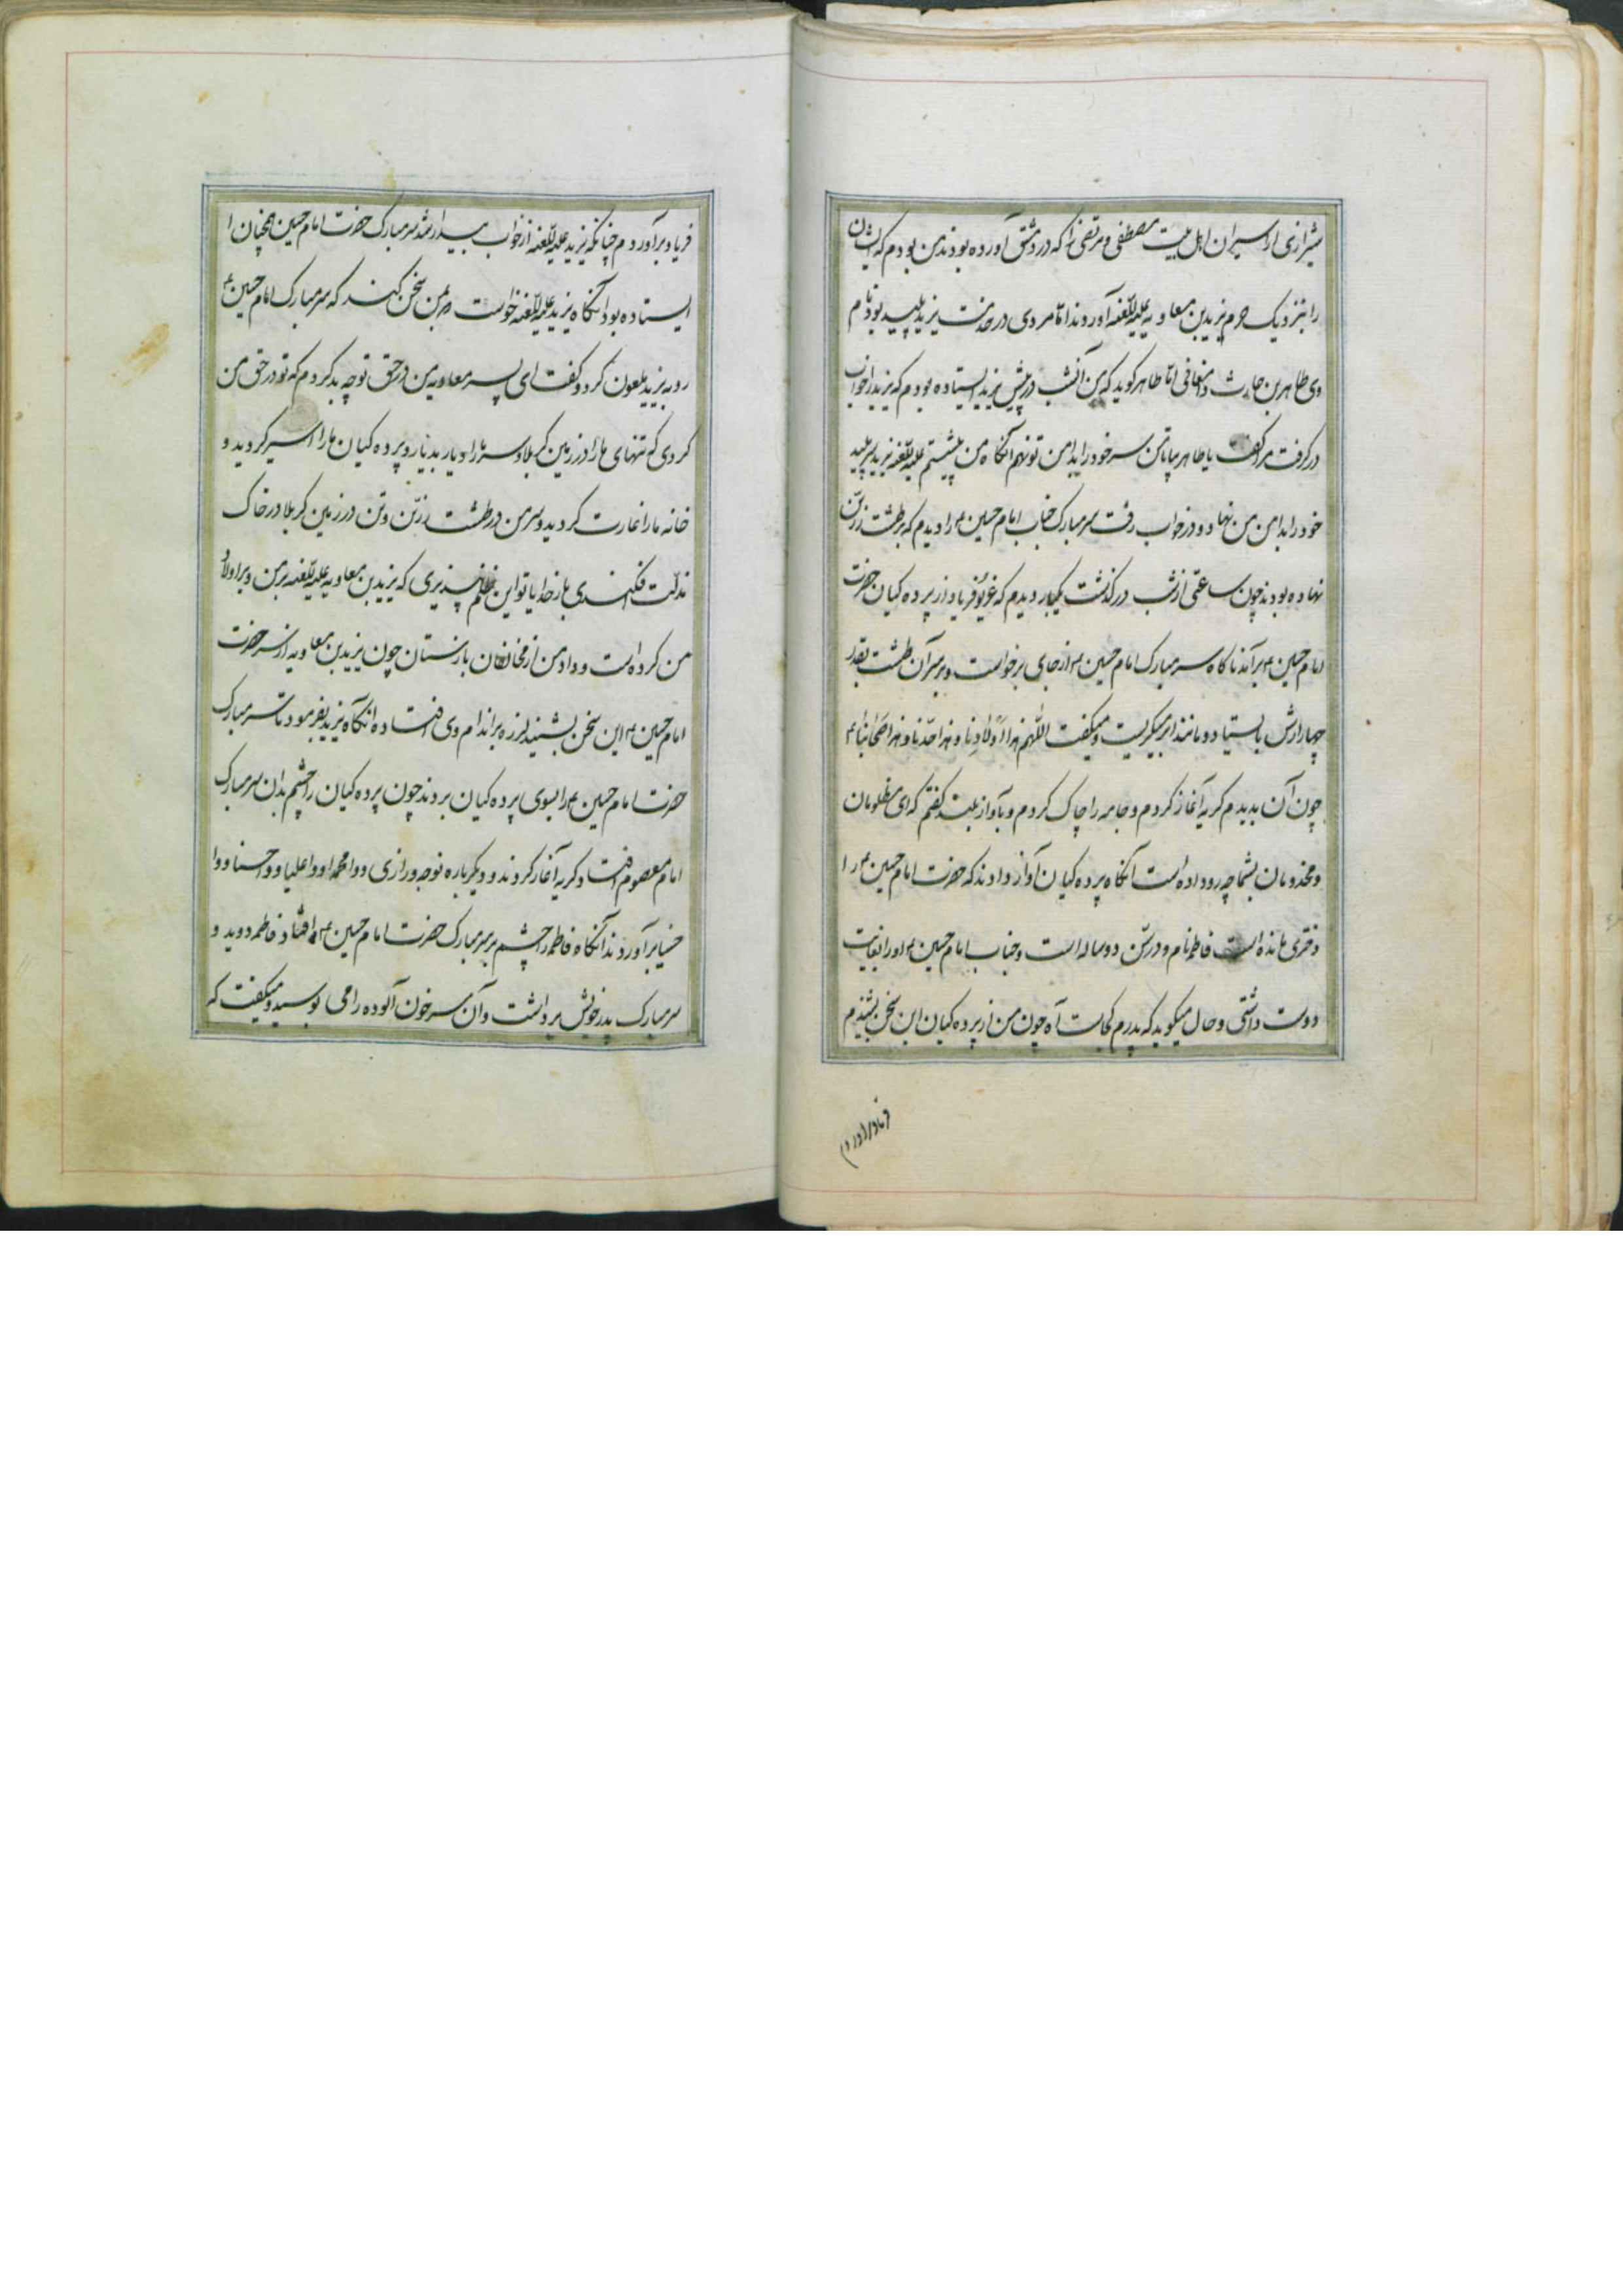 شیرازی از اسیران اهل بیت مصطفی و مرتضی را که در دمشق آورده بودند من بودم که ایشان
را بنزدیک حرم یزید بن معاویه علیه اللعنه آوردند اما مردی در خدمت یزید پلید بود نام
وی طاهر بن حارث اما طاهر گوید که من آنشب در پیش یزید ایستاده بودم که یزید را خواب
در گرفت مرا گفت یا طاهر بیا تا من سر خود را بدامن تو نهم آنگاه من بنشستم علیه اللعنه یزید سر پلید
خود را بدامن من نهاد و در خواب رفت سر مبارک جناب امام حسین ع را دیدم که بر طشت زرین
نهاده بودند چون ساعتی از شب در گذشت یکبار دیدم که غریو و فریاد از پرده کیان حضرت
امام حسین ع بر آمد ناکاه سر مبارک امام حسین ع از جای برخواست و بر سر آن طشت بقدر
چهار ارش بایستاد و مانند ابر میکریست و میکفت اللهم هذا اولادنا و هذا
چون آن بدیدم کریه آغاز کردم و جامه را چاک کردم و بآواز بلند کفتم که ای مظلومان
و مخدومان بشما چه رو داده است آنکاه پرده کیان آواز دادند که حضرت امام حسین ع را
دختری مانده است فاطمه نام و در سن دو ساله است و جناب امام حسین ع او را بغایت
دوست داشتی و حال میکوید که پدرم کجاست آه چون من از پرده کیان این سخن بشنیدم
فریاد برآوردم
فریاد برآوردم چنانکه یزید علیه اللعنه از خواب بیدار شد سر مبارک حضرت امام حسین همچنان ا
ایستاده بود آنکاه یزید علیه اللعنه خواست بمن سخن کند که سر مبارک امام حسین ع
رو به یزید ملعون کرد و کفت ای پسر معاویه من در حق تو چه بد کردم که تو در حق من
کردی که تنهای ما را در زمین کربلا و سر ما را دیار بدیار و پرده کیان ما را اسیر کردید و
خانه ما را غارت کردید و سر من در طشت زرین و تن در زمین کربلا در خاک
مذلت فکندی بار خدایا تو این ظلم پذیری که یزید بن معاویه علیه اللعنه بر من و بر اولاد
من کرده است و داد من از مخالفان باز ستان چون یزید بن معاویه از سر حضرت
امام حسین ع این سخن بشنید لرزه بر اندام وی افتاده انکاه یزید بفرمود تا سر مبارک
حضرت امام حسین ع را بسوی پرده کیان بردند چون پرده کیان را چشم بدان سر مبارک
امام معصوم افتاد کریه آغاز کردند و دیکر باره نوحه و زاری و وا محمدا و وا علیا و وا حسنا و وا
حسینا برآوردند آنکاه فاطمه را چشم بر سر مبارک حضرت امام حسین ع افتاد فاطمه دوید و
سر مبارک پدر خویش برداشت و آن سر خون آلوده را می بوسید و میکفت که